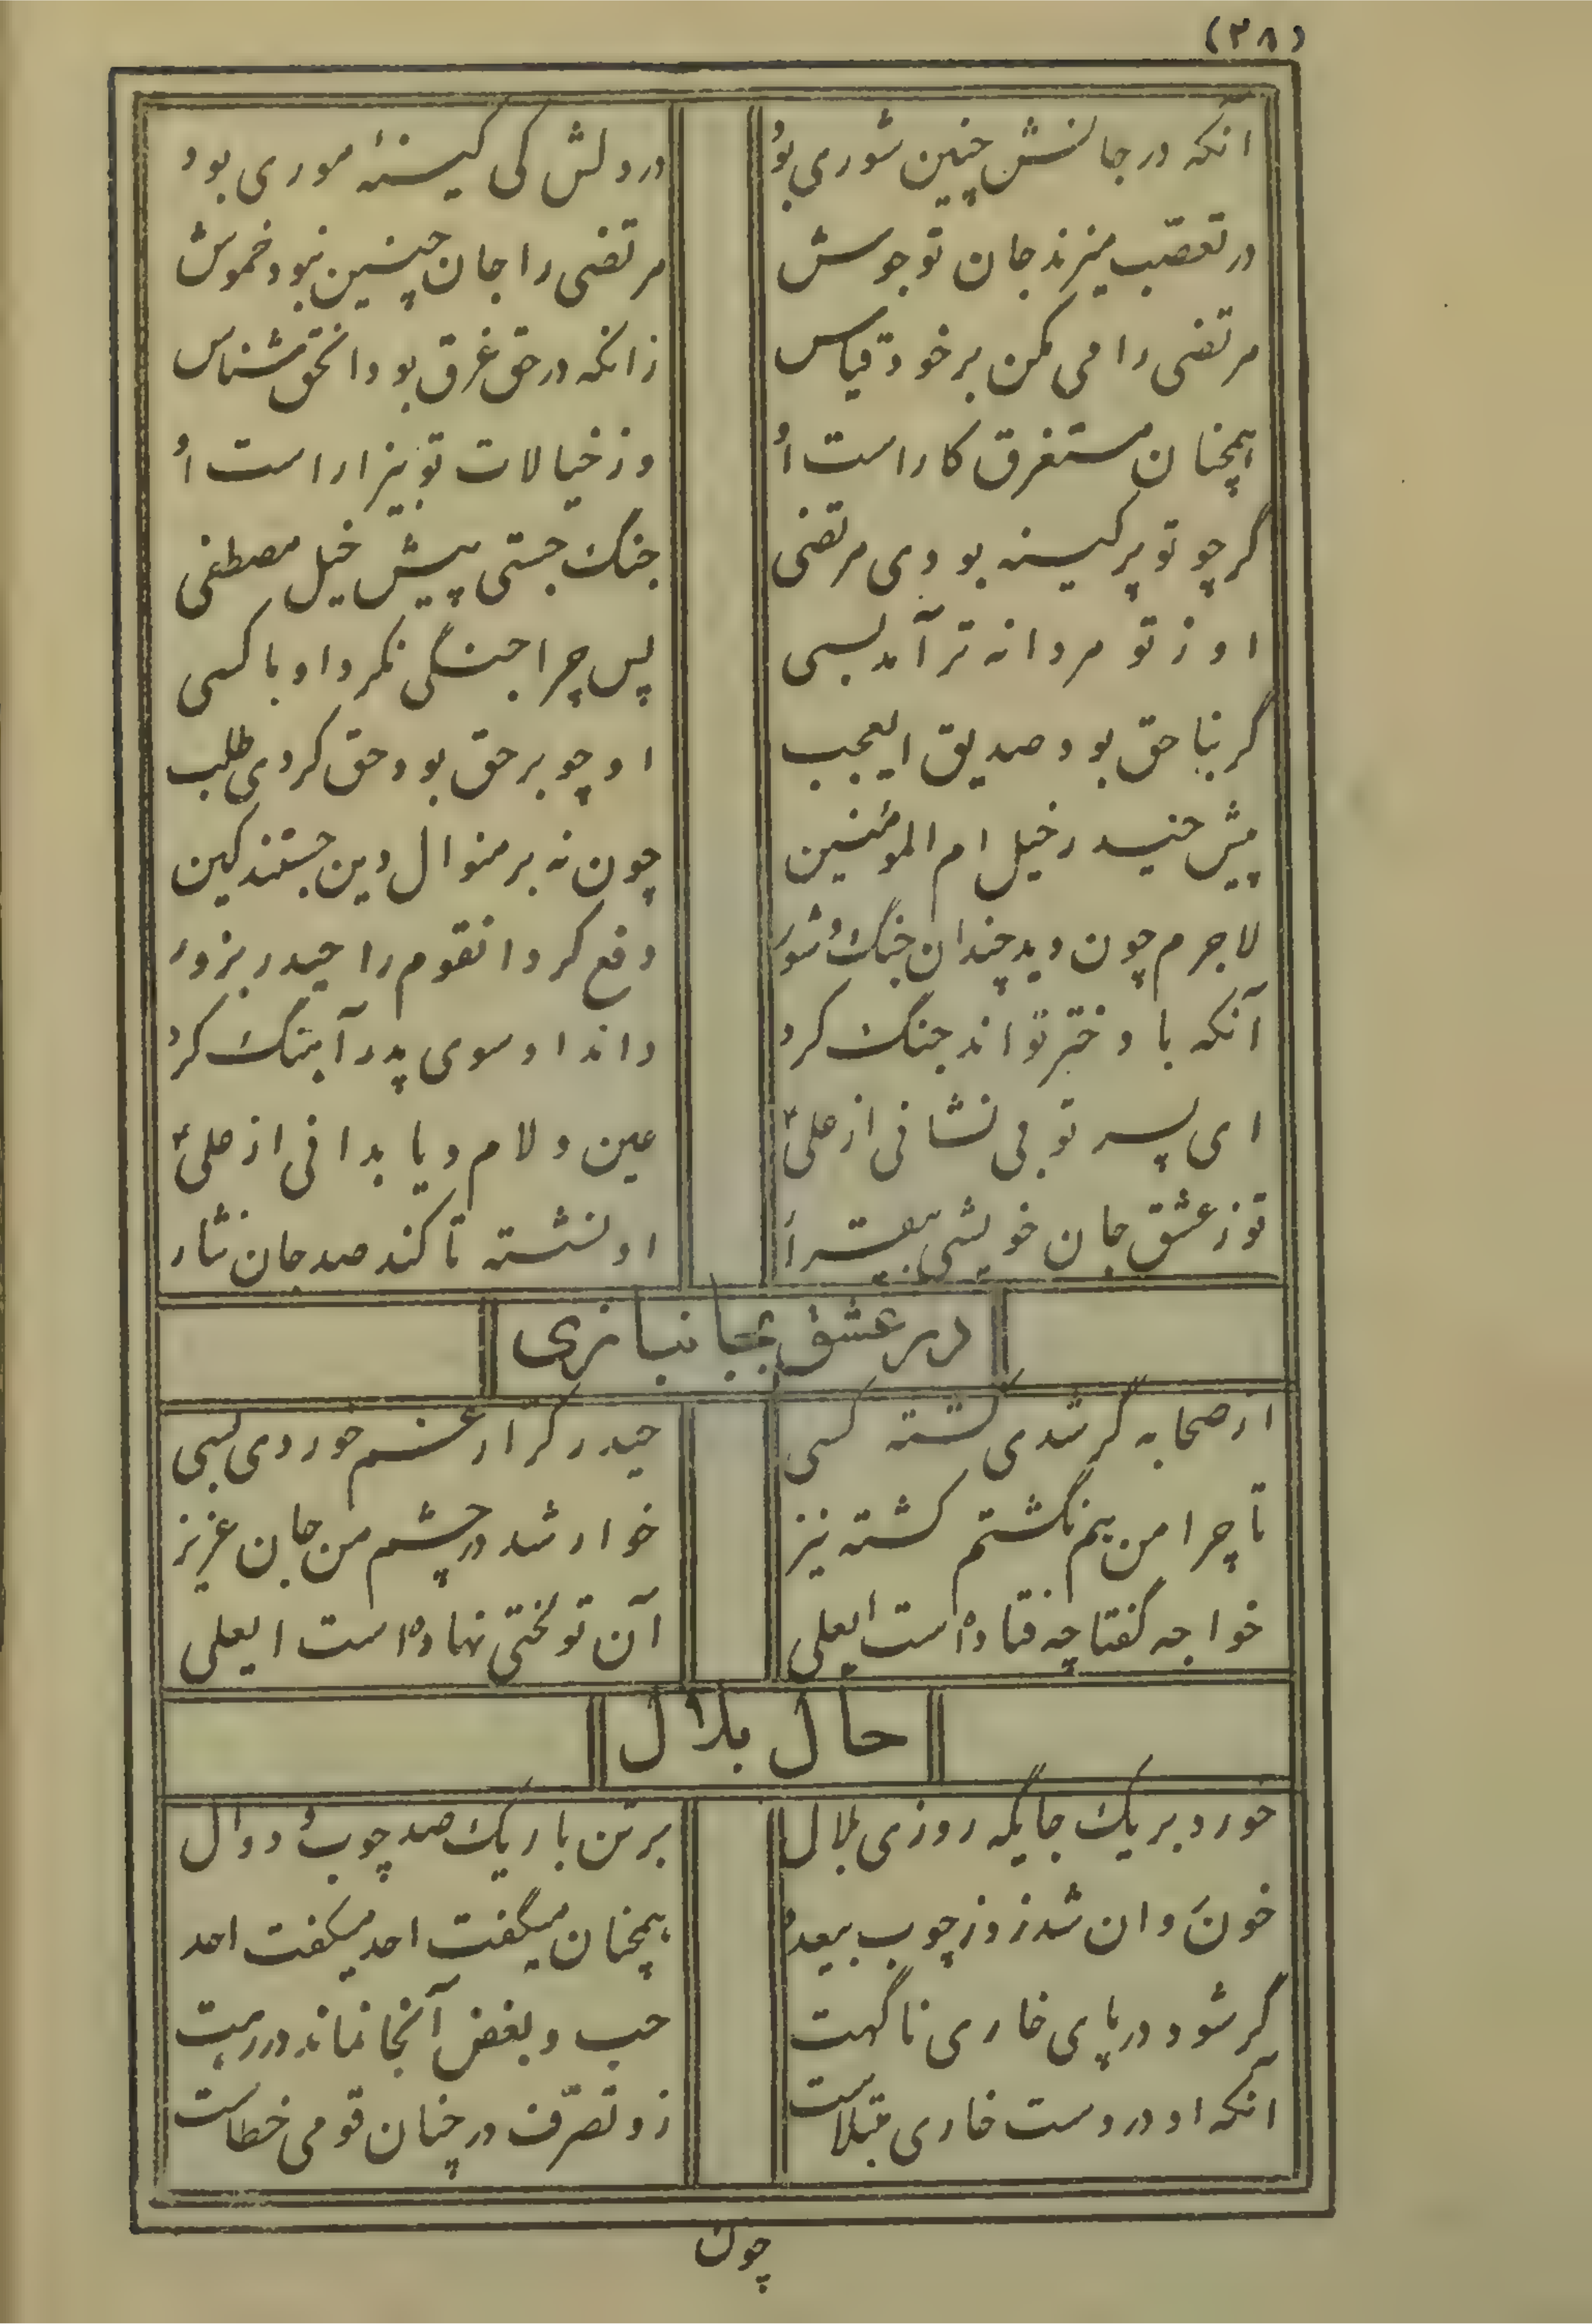 (۳۸)
آنکه در جانش چنین شوری بود در دلش کی کینهٔ موری بود
در تعصب میزند جان تو جوش مرتضی را جان چنین نبود خموش
مرتضی را می مکن بر خود قیاس زانکه در حق غرق بود انحق شناس
همچنان مستغرق کار است او وز خیالات تو بیزار است او
گر چو تو پر کینه بودی مرتضی جنگ جستی پیش خیل مصطفی
او ز تو مردانه تر آمد بسی پس چرا جنگی نکرد او با کسی
گر بناحق بود صدیق ایعجب او چو بر حق بود حق کردی طلب
پیش حیدر خیل ام المؤمنین چون نه بر منوال دین جستند کین
لاجرم چون دید چندان جنگ و شور دفع کرد انقوم را حیدر بزور
آنکه با دختر تواند جنگ کرد داند او سوی پدر آهنگ کرد
ای پسر تو بی نشانی از علی عین و لام و یا بدانی از علی
تو ز عشق جان خویشی بیقرار او نشسته تا کند صد جان نثار
در عشق بجانبازی
از صحابه گر شدی کشته کسی حیدر کرار غم خوردی بسی
تا چرا من هم نگشتم کشته نیز خوار شد در چشم من جان عزیز
خواجه گفتا چه فتاده است ایعلی آن تو لختی نهاده است ایعلی
حال بلال
خورد بر یک جایگه روزی بلال بر تن باریک صد چوب و دوال
خون روان شد زو ز چوب بیعدد همچنان میگفت احد میگفت احد
گر شود در پای خاری ناگهت حب و بغض آنجا نماند در رهت
آنکه او در دست خاری مبتلاست زو تصرف در چنان قومی خطاست
چون